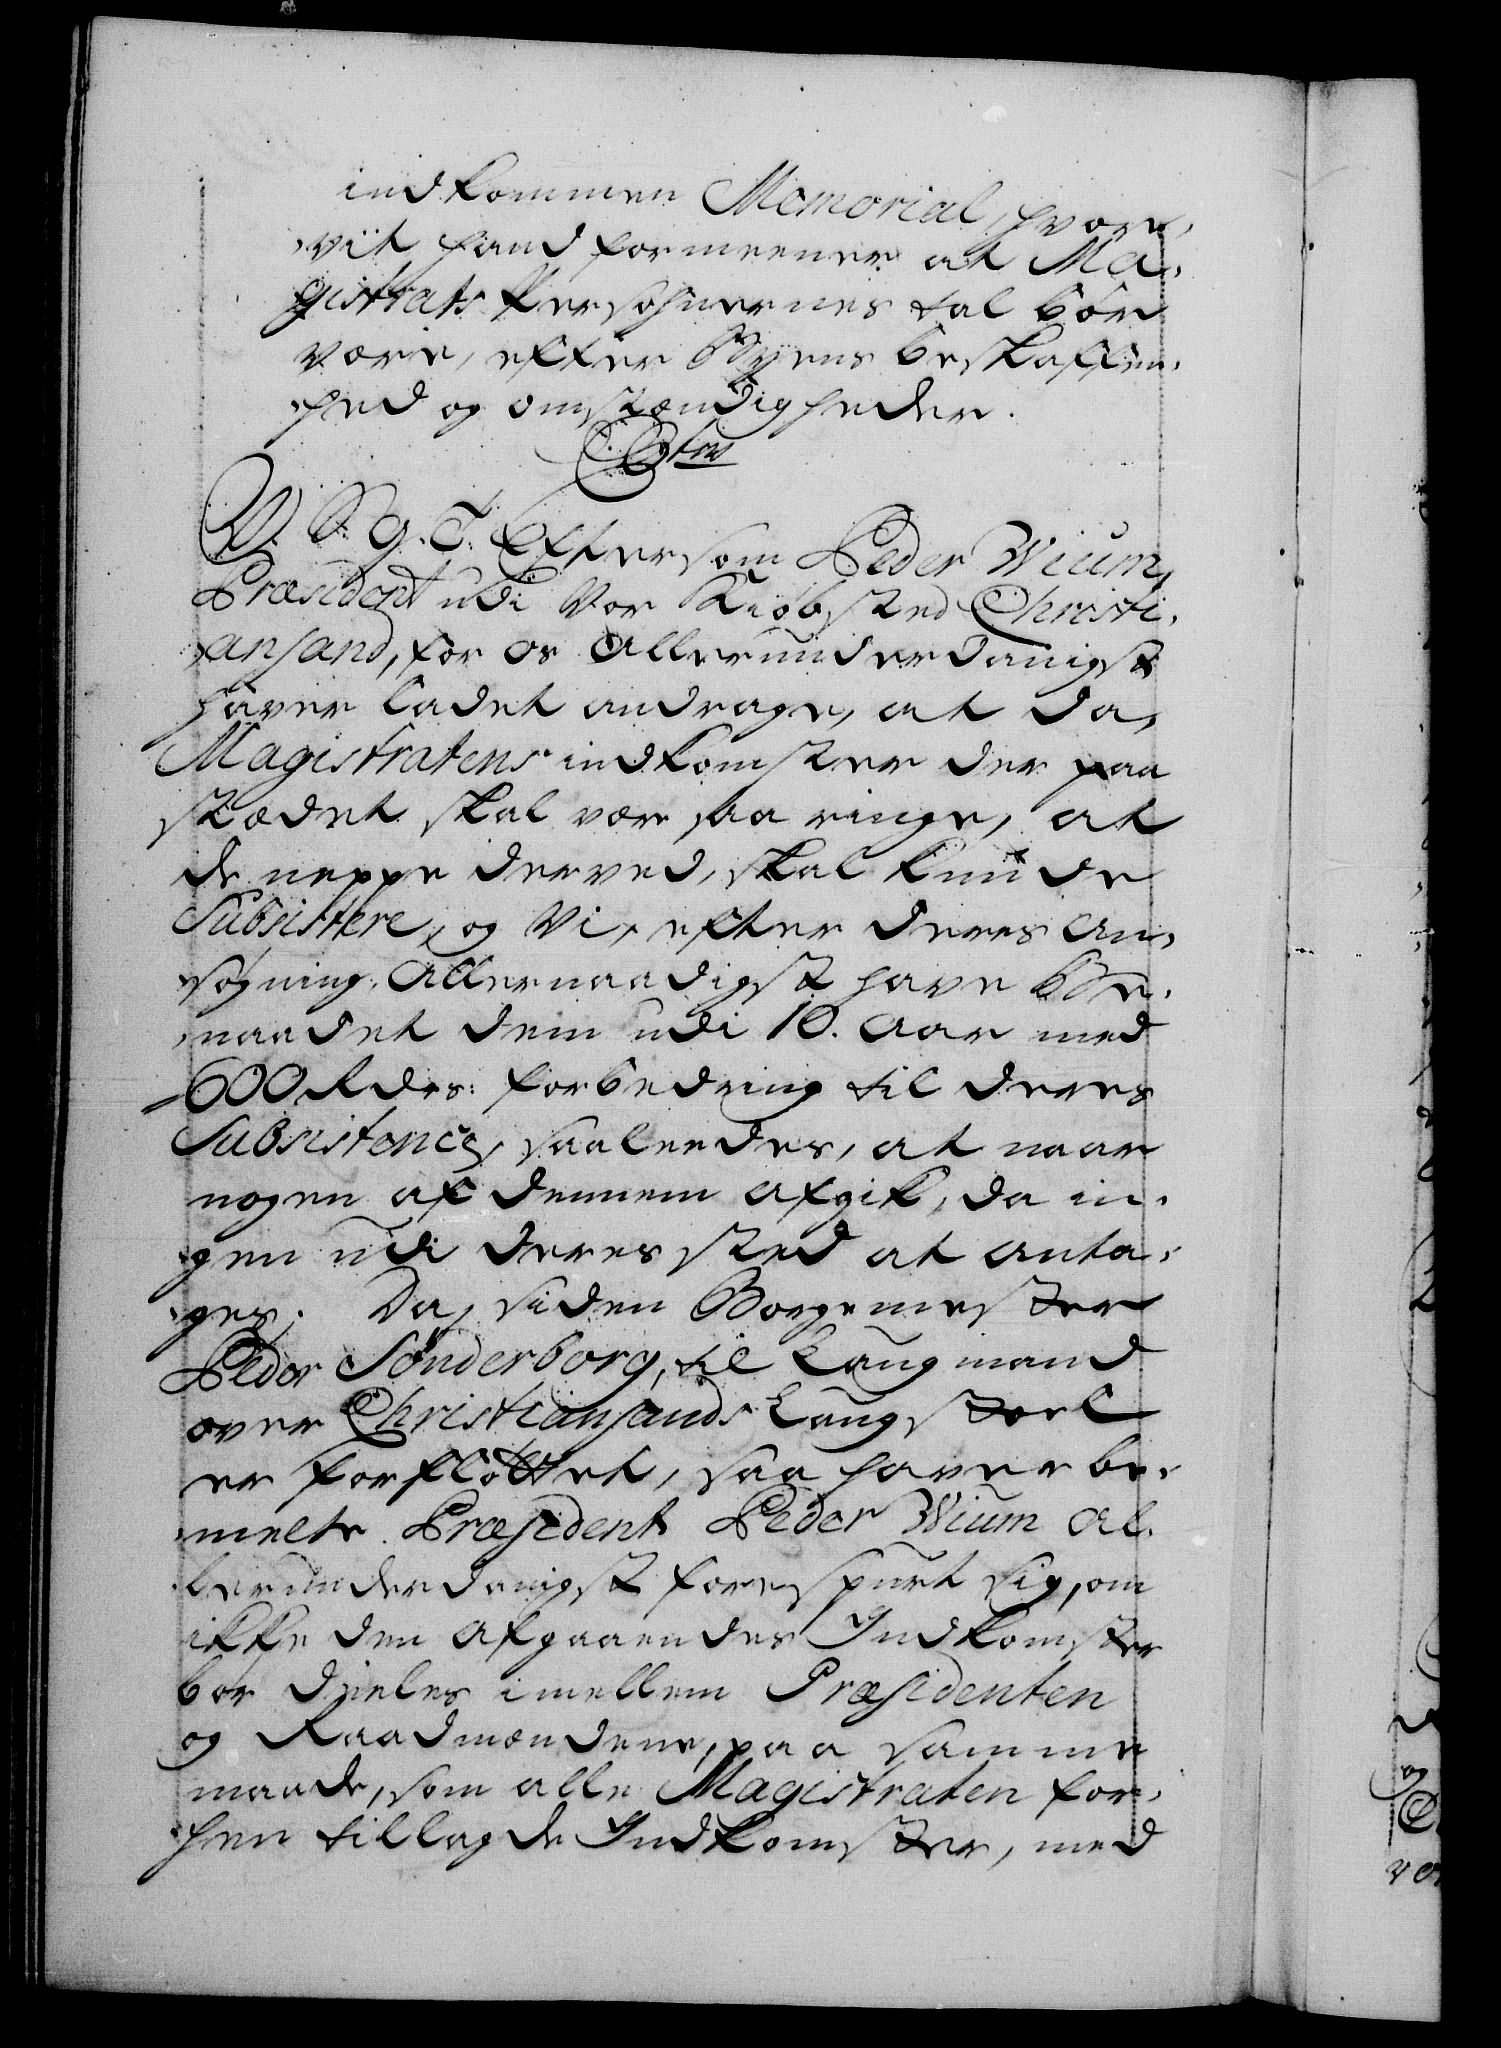 indkommen Memorial, hvor,
,vit hand formeener at Ma,
gistrats Persohnernes tal bør
være, efter Byens beskaffen,
,hed og omstændigheder.
V. S. G. T. Eftersom Peder Wium,
Præsident udi Vor Kiøbsted Christi,
,ansand, for os Allerunderdanigst
haver ladet andrage, at da,
Magistratens indkomster der paa
stædet skal være saa ringe, at
de neppe derved, skal kunde
Subsistere, og Vi, efter deres an,
søgning, Allernaadigst have Be,
,naadet dem udi 10. Aar med
600 Rdrs: forbedring til deres
Subsistence, saaleedes, at naar
nogen af dennem afgik, da in,
,gen udi deres sted at anta,
,ges; Da, siden Borgemester
Peder Sønderborg, til Laugmand
over Christiansands Laugstoel
er forfløttet, saa haver be,
,melte Præsident Peder Wium Al,
,lerunderdanigst forespurt sig, om
ikke den afgaaendes Indkomster
bør dieeles imellem Præsidenten
og Raadmændene, paa samme
maade, som alle Magistraten for,
,hen tillagde Indkomster, med